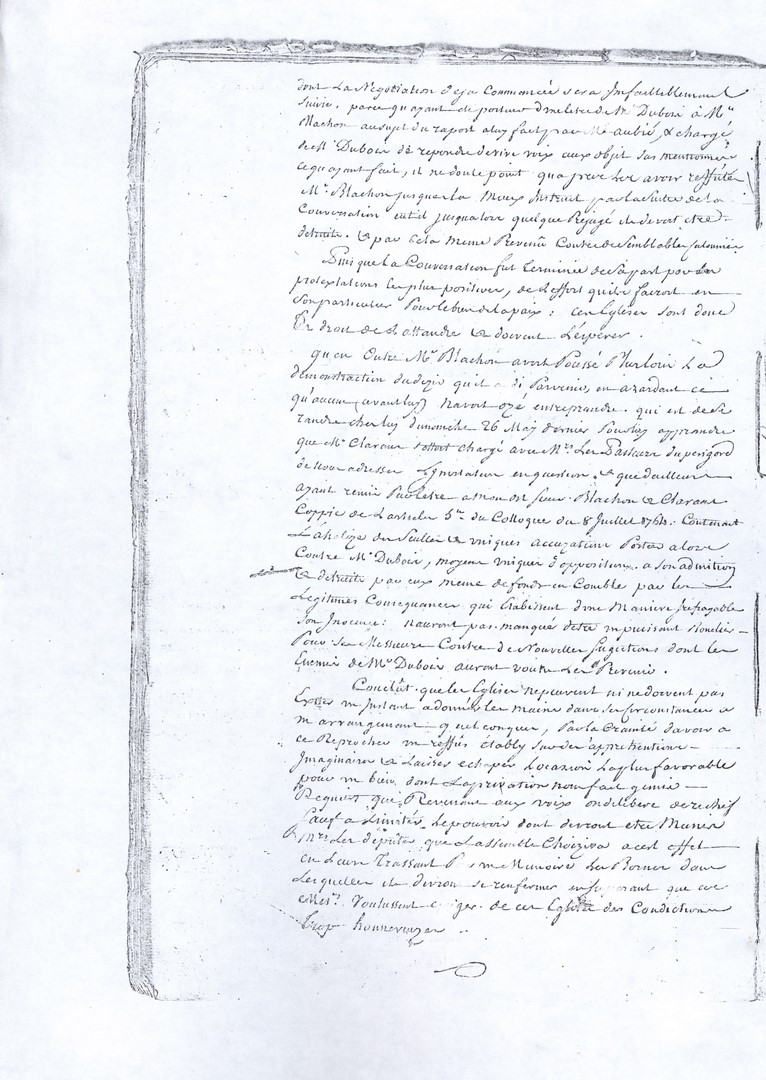 dont La Negotiation deja Commancée sera Infailliblement
suivie. parce qu'ayant été porteur d'une letre de Mr Dubois à Mr
Blachon au sujet du raport a luy fait par Mr aubié, & chargé
de Mr Dubois de repondre de vive voix aux objet sus mentionné
ce qu'ayant fait, il ne doute point avoir reffuter
Mr. Blachon jusque la moux Instruit par la suite de la
Conversation eut-il jusqualors quelque Préjugé il devoit etre
detruite. & par cela meme Prevenû Contre de semblable Calomnie
Puis que la Conversation fut Terminée de sa part par les
protestations les plus positives, de l'effort qu'ils fairont en
son particulier Pour le bien de la paix : ces Eglises sont donc
En droit de L'attandre & doivent L'esperer.
qu'en Outre Mr Blachon avoit Poussé Plus loin La
demonstraction du dezir qu'il a di Parvenir, en azardant ce
qu'aucun (avant luy) n'avoit ozé entreprandre. qui est de se
randre ches luy dimanche 26 May dernier Pour luy apprandre
que Mr Clarant s'ettoit chargé avec Mrs Les Pasteurs du perigord
de vous adresser L'Invitation en question. & que d'ailleurs
ayant remis Par letre a mon dit sieur Blachon & Clarant
Coppie de L'article 5me du Colloque du 8 Juillet 1764. Contenant
L'analize des Seulles & uniques accuzations Portée alors
Contre Mr Dubois, moyens unique d'oppositions a son admition
& detruite par eux meme de fonds en Comble par les
Legitimes Consequances qui Etabissent d'une Maniere Irefragable
son Inocence : nauront pas manqué d'etre un puissant
Pour ses Messieurs Contre de Nouvelles sugections dont les
Ennemis de Mr Dubois auront voulu Les Prevenir.
Conclût que les Eglises ne peuvent ni ne doivent pas
un Instant a donner les mains dans ses circonstances a
un arrangemant quelconque, Par la Crainte d'avoir a
ce Reprocher un reffus établÿ sur des appréhentions
Imaginaires & Laisser echaper Locazion La plus favorable
pour un bien dont La privation nous fait gemir
Requiert que Revenant aux voix on delibere de rechef
Sauf a Limiter Le pouvoir dont devront etre Munis
Mrs Les députés, que L'assemblé Choizira a cet effet
en Leur Trassant Par un Memoire Les Bornes dans
Lesquelles ils devron se renfermer en suposant que ces
Messrs. Voulussent exiger de ces Eglises des Condictions
trop honnereuzes